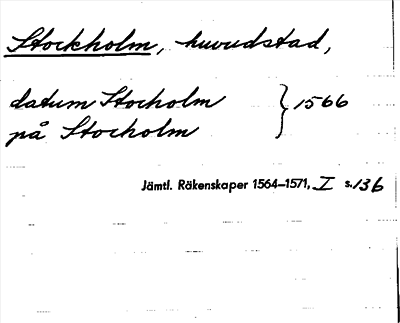 Stockholm, huvudstad,
datum Stocholm } 1566
på Stocholm
Jämtl. Räkenskaper 1564–1571, I s. 136